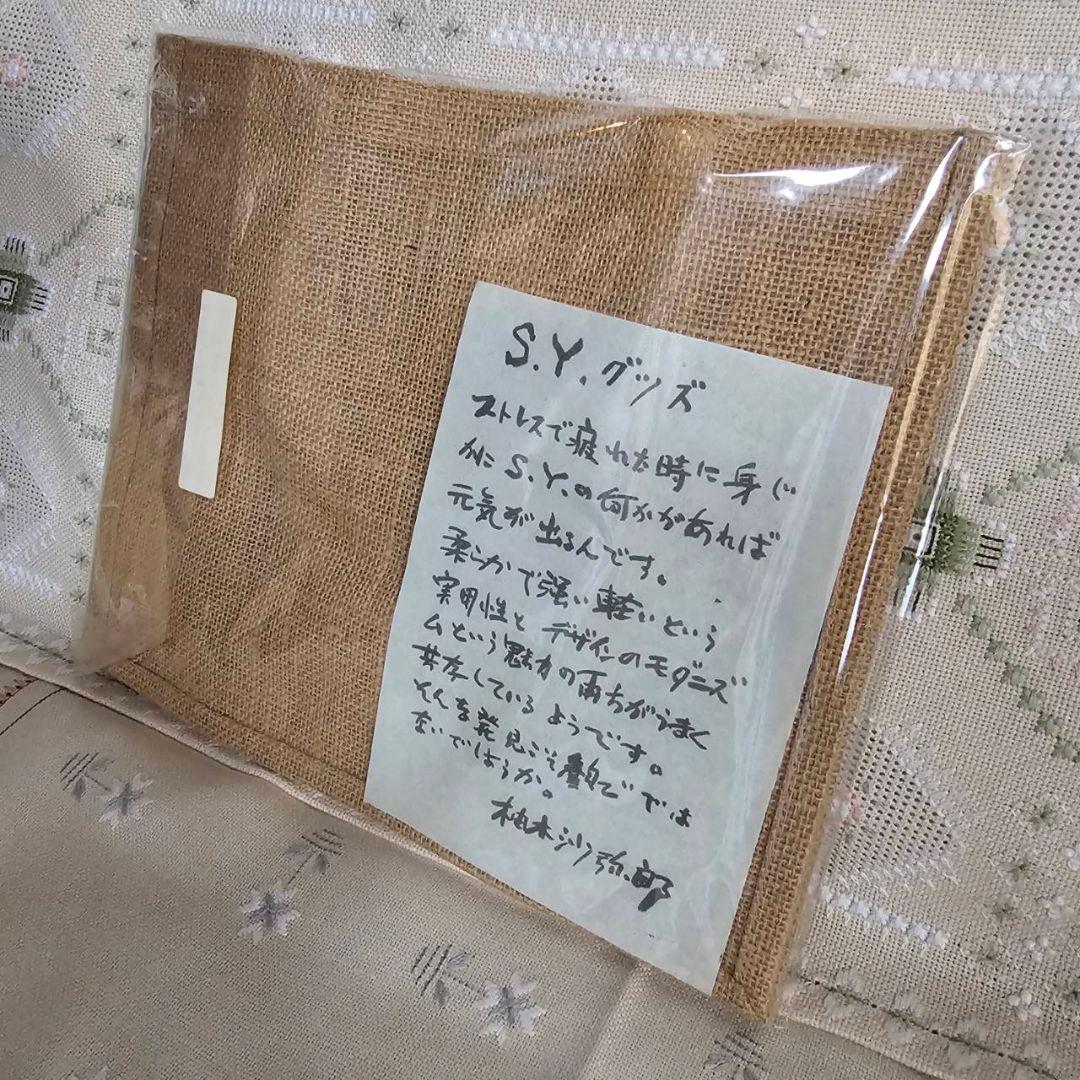 S.Y.グッズ
ストレスで疲れた時に身じ
かに S.Y.の何かがあれば
元気が出るんです。
柔らかで強い軽いという
実用性と デザインのモダニズ
ムという魅力の両方がうまく
共存しているようです。
そんな発見こそ素敵でで は
ないでしょうか。
柚木沙弥郎